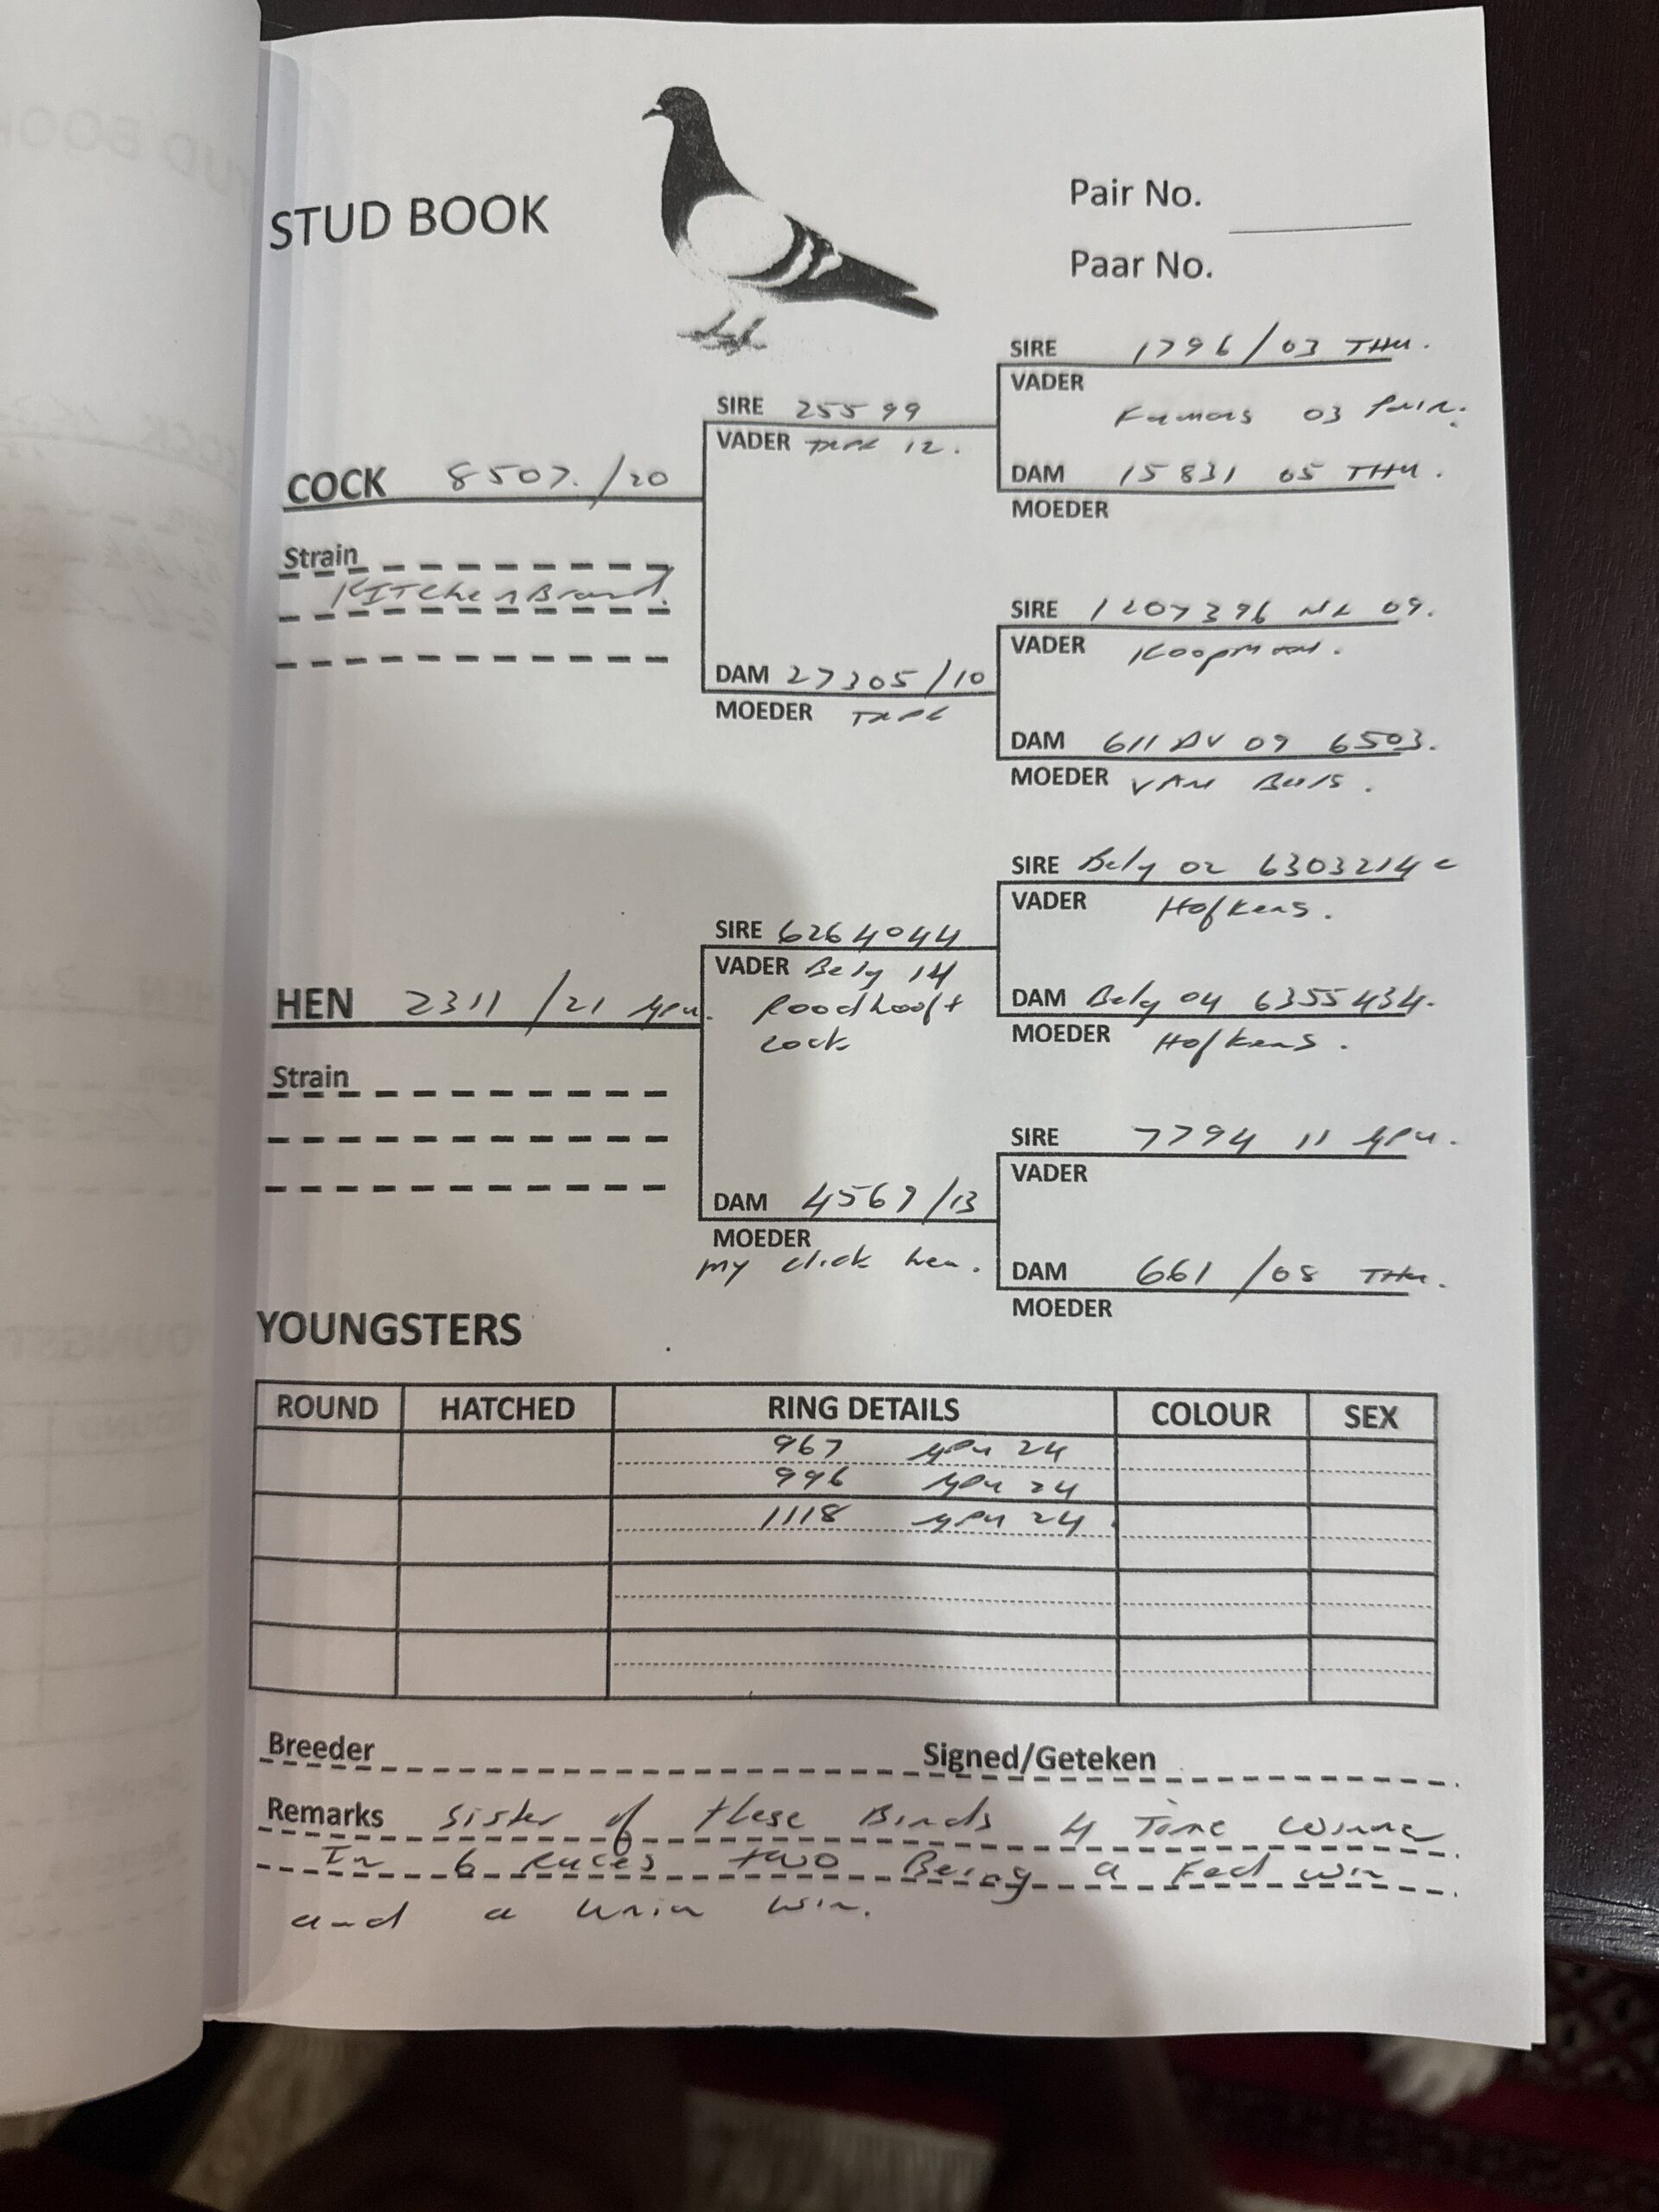 STUD BOOK
Pair No.
Paar No.
SIRE 1796/03 THU.
VADER
Famous 03 Pair.
DAM 15831 05 THU.
MOEDER
SIRE 25599
VADER 12.
COCK 8507./20
Strain
KITchenBrand.
SIRE 1207396 NL 09.
VADER Koopman.
DAM 27305/10
MOEDER
DAM 611 DV 09 6503.
MOEDER VAN Buis.
SIRE Belg 02 6303214 c
VADER Hofkens.
SIRE 6264044
VADER Belg 14
Roodhooft
Cock
HEN 2311/21 GPU.
DAM Belg 04 6355434.
MOEDER Hofkens.
Strain
SIRE 7794 11 GPU.
VADER
DAM 4567/13
MOEDER
my click hen.
DAM 661/08 THU.
MOEDER
YOUNGSTERS
ROUND HATCHED RING DETAILS COLOUR SEX
967 GPU 24
996 GPU 24
1118 GPU 24
Breeder Signed/Geteken
Remarks Sister of these Birds 4 Time winner
In 6 Races two Being a Fed win
and a Union win.